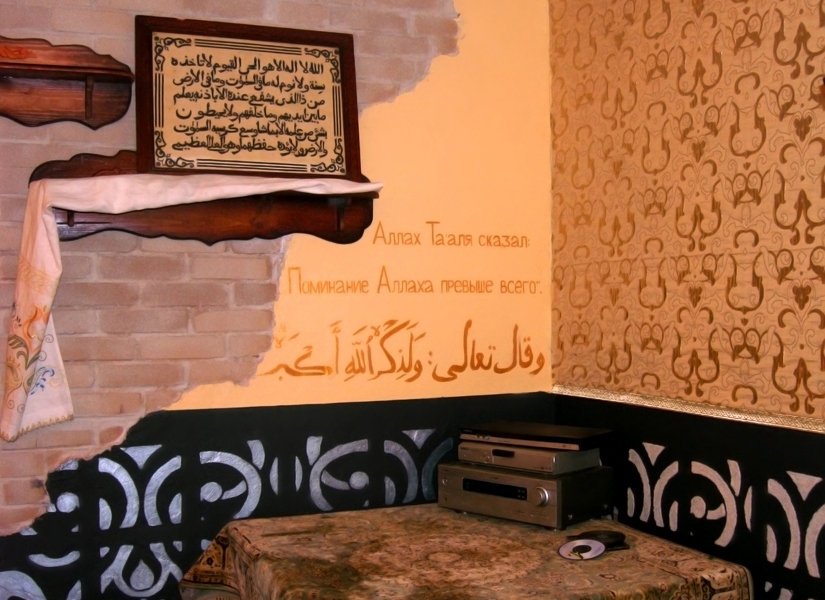 الله لا اله الا هو الحي القيوم لا تاخذه
سنة ولا نوم له ما في السموت وما في الارض
من ذا الذي يشفع عنده الا باذنه يعلم
ما بين ايديهم وما خلفهم ولا يحيطون
بشئ من علمه الا بما شاء وسع كرسيه السموت
والارض ولا يؤده حفظهما وهو العلي العظيم
Аллах Та'аля сказал:
"Поминание Аллаха превыше всего".
وقال تعالى: وَلَذِكْرُ اللَّهِ أَكْبَرُ